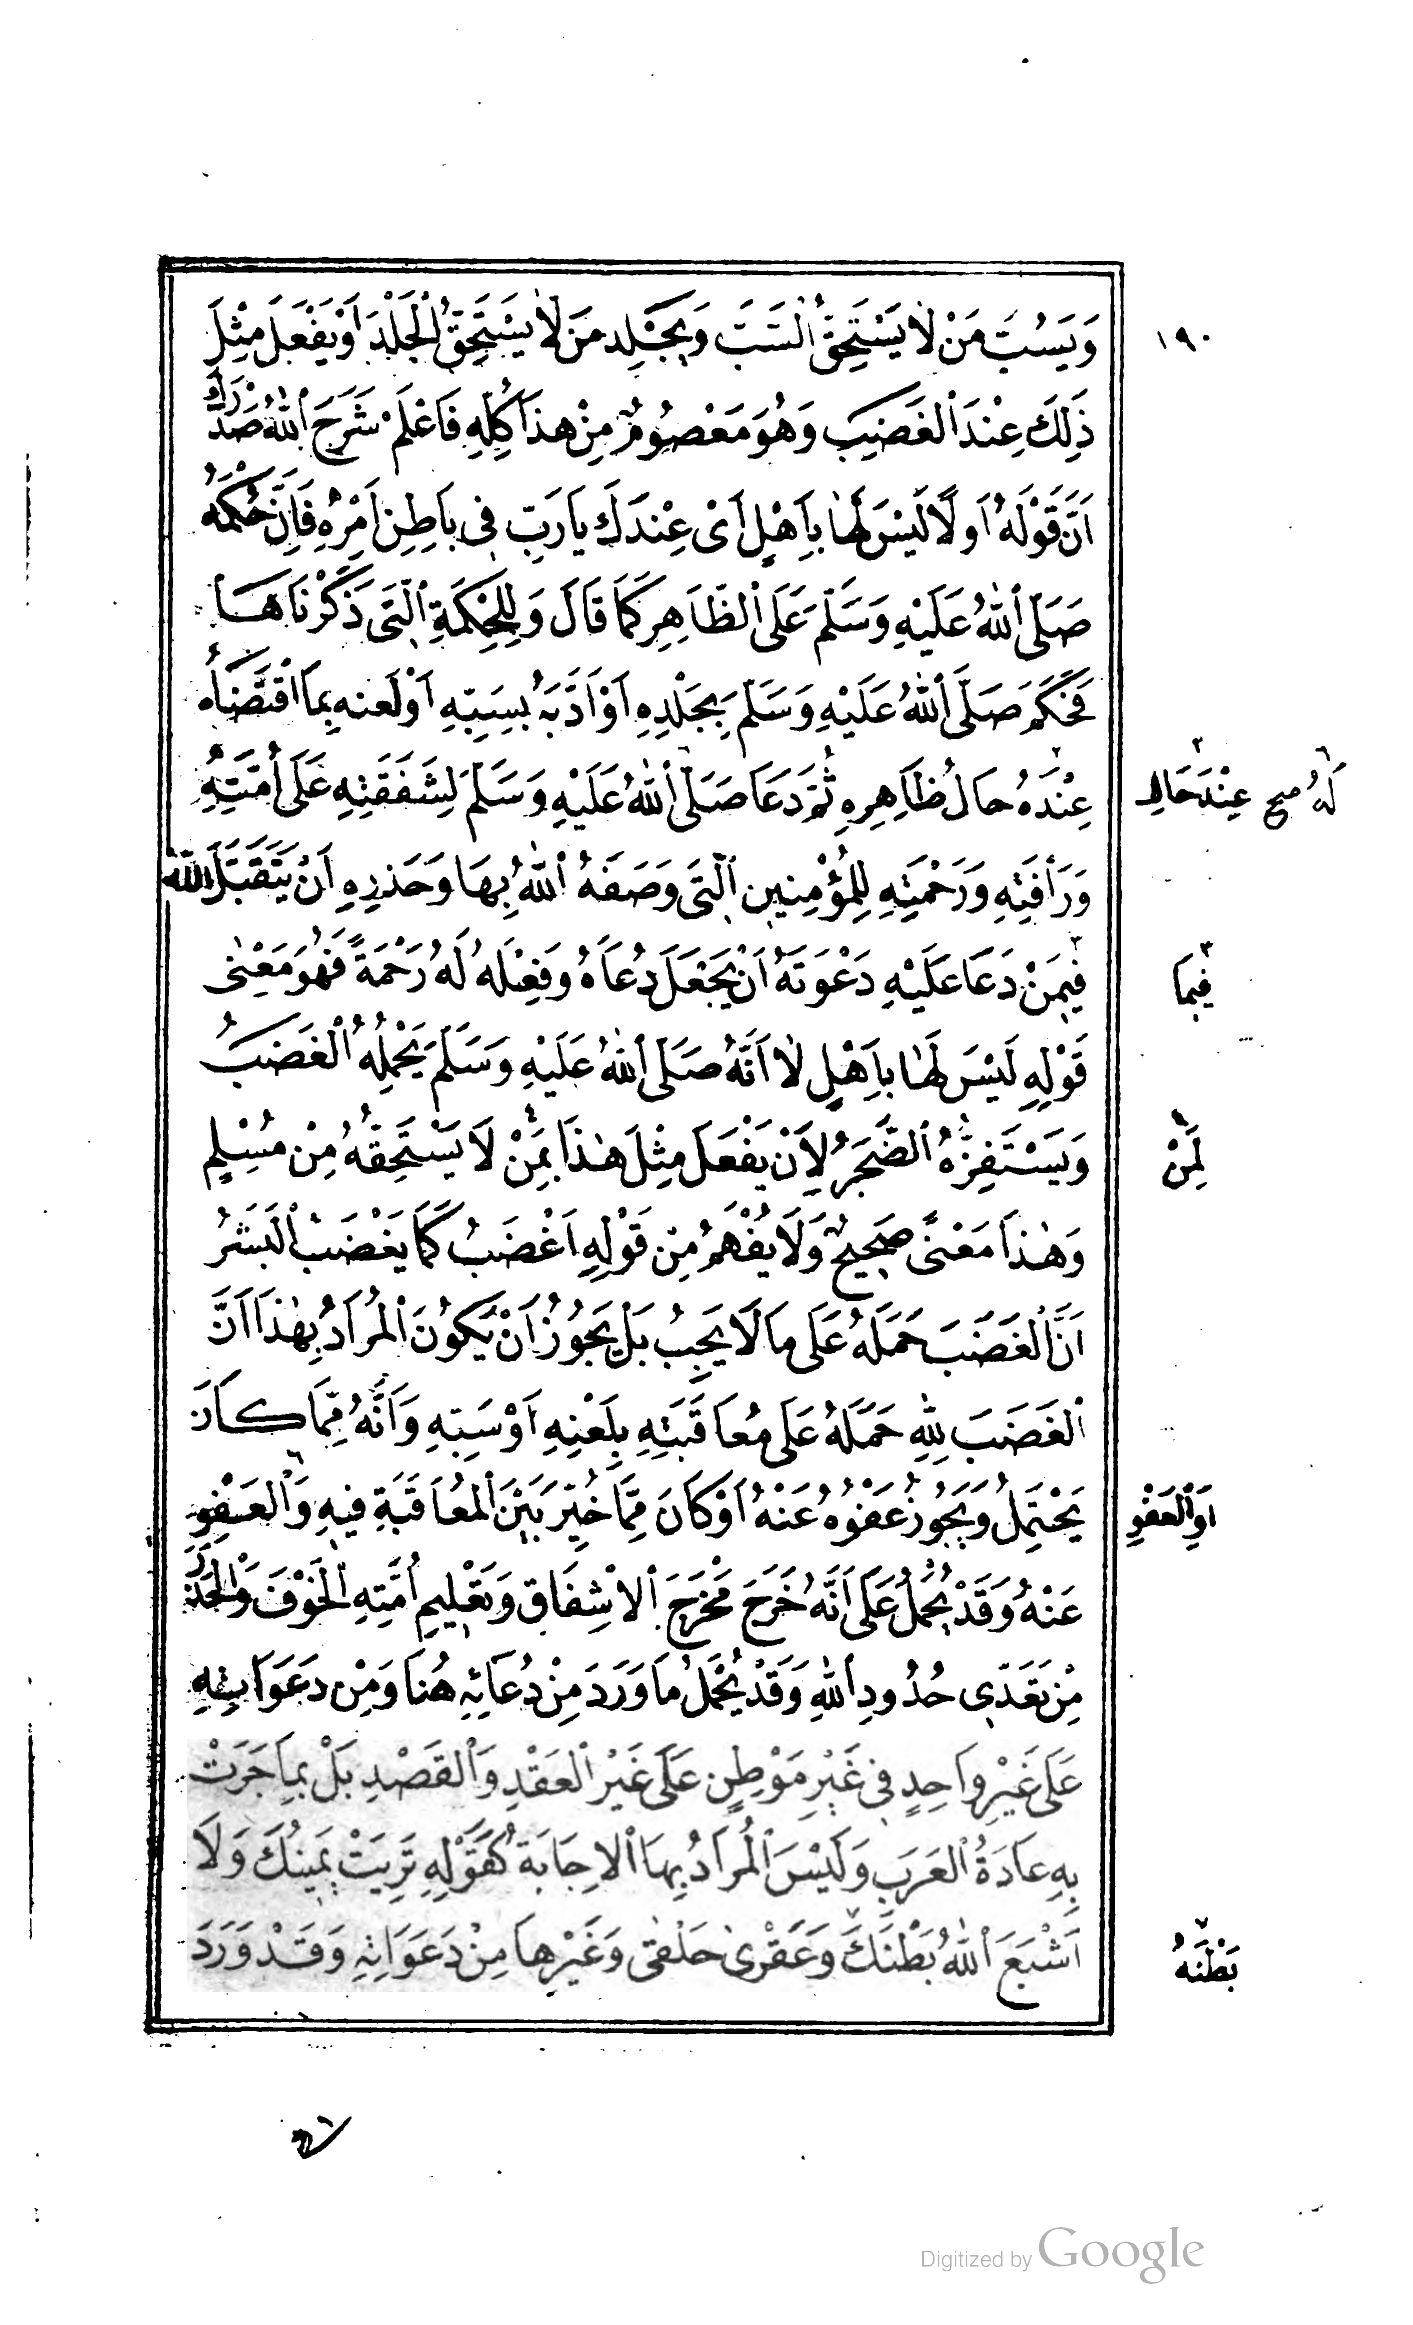 ١٩٠
وَيَسُبَّ مَنْ لَا يَسْتَحِقُّ ٱلسَّبَّ وَيَجْلِدَ مَنْ لَا يَسْتَحِقُّ ٱلْجَلْدَ اَوْ يَفْعَلَ مِثْلَ
ذٰلِكَ عِنْدَ ٱلْغَضَبِ وَهُوَ مَعْصُومٌ مِنْ هٰذَا كُلِّهِ فَاعْلَمْ شَرَحَ ٱللّٰهُ صَدْرَكَ
اَنَّ قَوْلَهُ اَوَّلًا لَيْسَ لَهَا بِاَهْلٍ اَىْ عِنْدَكَ يَا رَبِّ فِى بَاطِنِ اَمْرِهِ فَاِنَّ حُكْمَهُ
صَلَّى ٱللّٰهُ عَلَيْهِ وَسَلَّمَ عَلَى ٱلظَّاهِرِ كَمَا قَالَ وَلِلْحِكْمَةِ ٱلَّتِى ذَكَرْنَاهَا
فَحَكَمَ صَلَّى ٱللّٰهُ عَلَيْهِ وَسَلَّمَ بِجَلْدِهِ اَوْ اَدَّبَهُ بِسَبِّهِ اَوْ لَعْنِهِ بِمَا ٱقْتَضَاهُ
عِنْدَهُ حَالُ ظَاهِرِهِ ثُمَّ دَعَا صَلَّى ٱللّٰهُ عَلَيْهِ وَسَلَّمَ لِشَفَقَتِهِ عَلَى اُمَّتِهِ
٢ عِنْدَ حَالِ
٦ لَهُ صح
وَرَأْفَتِهِ وَرَحْمَتِهِ لِلْمُؤْمِنِينَ ٱلَّتِى وَصَفَهُ ٱللّٰهُ بِهَا وَحَذَرِهِ اَنْ يَتَقَبَّلَ ٱللّٰهُ
فِيمَنْ دَعَا عَلَيْهِ دَعْوَتَهُ اَنْ يَجْعَلَ دُعَاهُ وَفِعْلَهُ لَهُ رَحْمَةً فَهُوَ مَعْنٰى
٣ فِيمَا
قَوْلِهِ لَيْسَ لَهَا بِاَهْلٍ لَا اَنَّهُ صَلَّى ٱللّٰهُ عَلَيْهِ وَسَلَّمَ يَحْمِلُهُ ٱلْغَضَبُ
وَيَسْتَفِزُّهُ ٱلضَّجَرُ لِاَنْ يَفْعَلَ مِثْلَ هٰذَا بِمَنْ لَا يَسْتَحِقُّهُ مِنْ مُسْلِمٍ
لِمَنْ
وَهٰذَا مَعْنًى صَحِيحٌ وَلَا يُفْهَمُ مِنْ قَوْلِهِ اَغْضَبُ كَمَا يَغْضَبُ ٱلْبَشَرُ
اَنَّ ٱلْغَضَبَ حَمَلَهُ عَلَى مَا لَا يَجِبُ بَلْ يَجُوزُ اَنْ يَكُونَ ٱلْمُرَادُ بِهٰذَا اَنَّ
ٱلْغَضَبَ لِلّٰهِ حَمَلَهُ عَلَى مُعَاقَبَتِهِ بِلَعْنِهِ اَوْ سَبِّهِ وَاَنَّهُ مِمَّا كَانَ
يَحْتَمِلُ وَيَجُوزُ عَفْوُهُ عَنْهُ اَوْ كَانَ مِمَّا خُيِّرَ بَيْنَ ٱلْمُعَاقَبَةِ فِيهِ وَٱلْعَفْوِ
اَوِ ٱلْعَفْوِ
عَنْهُ وَقَدْ يُحْمَلُ عَلَى اَنَّهُ خَرَجَ مَخْرَجَ ٱلْاِشْفَاقِ وَتَعْلِيمِ اُمَّتِهِ ٱلْخَوْفَ وَٱلْحَذَرَ
مِنْ تَعَدِّى حُدُودِ ٱللّٰهِ وَقَدْ يُحْمَلُ مَا وَرَدَ مِنْ دُعَائِهِ هُنَا وَمِنْ دَعَوَاتِهِ
عَلَى غَيْرِ وَاحِدٍ فِى غَيْرِ مَوْطِنٍ عَلَى غَيْرِ ٱلْعَقْدِ وَٱلْقَصْدِ بَلْ بِمَا جَرَتْ
بِهِ عَادَةُ ٱلْعَرَبِ وَلَيْسَ ٱلْمُرَادُ بِهَا ٱلْاِجَابَةَ كَقَوْلِهِ تَرِبَتْ يَمِينُكَ وَلَا
اَشْبَعَ ٱللّٰهُ بَطْنَكَ وَعَقْرٰى حَلْقٰى وَغَيْرِهَا مِنْ دَعَوَاتِهِ وَقَدْ وَرَدَ
٧ بَطْنَهُ
Digitized by Google